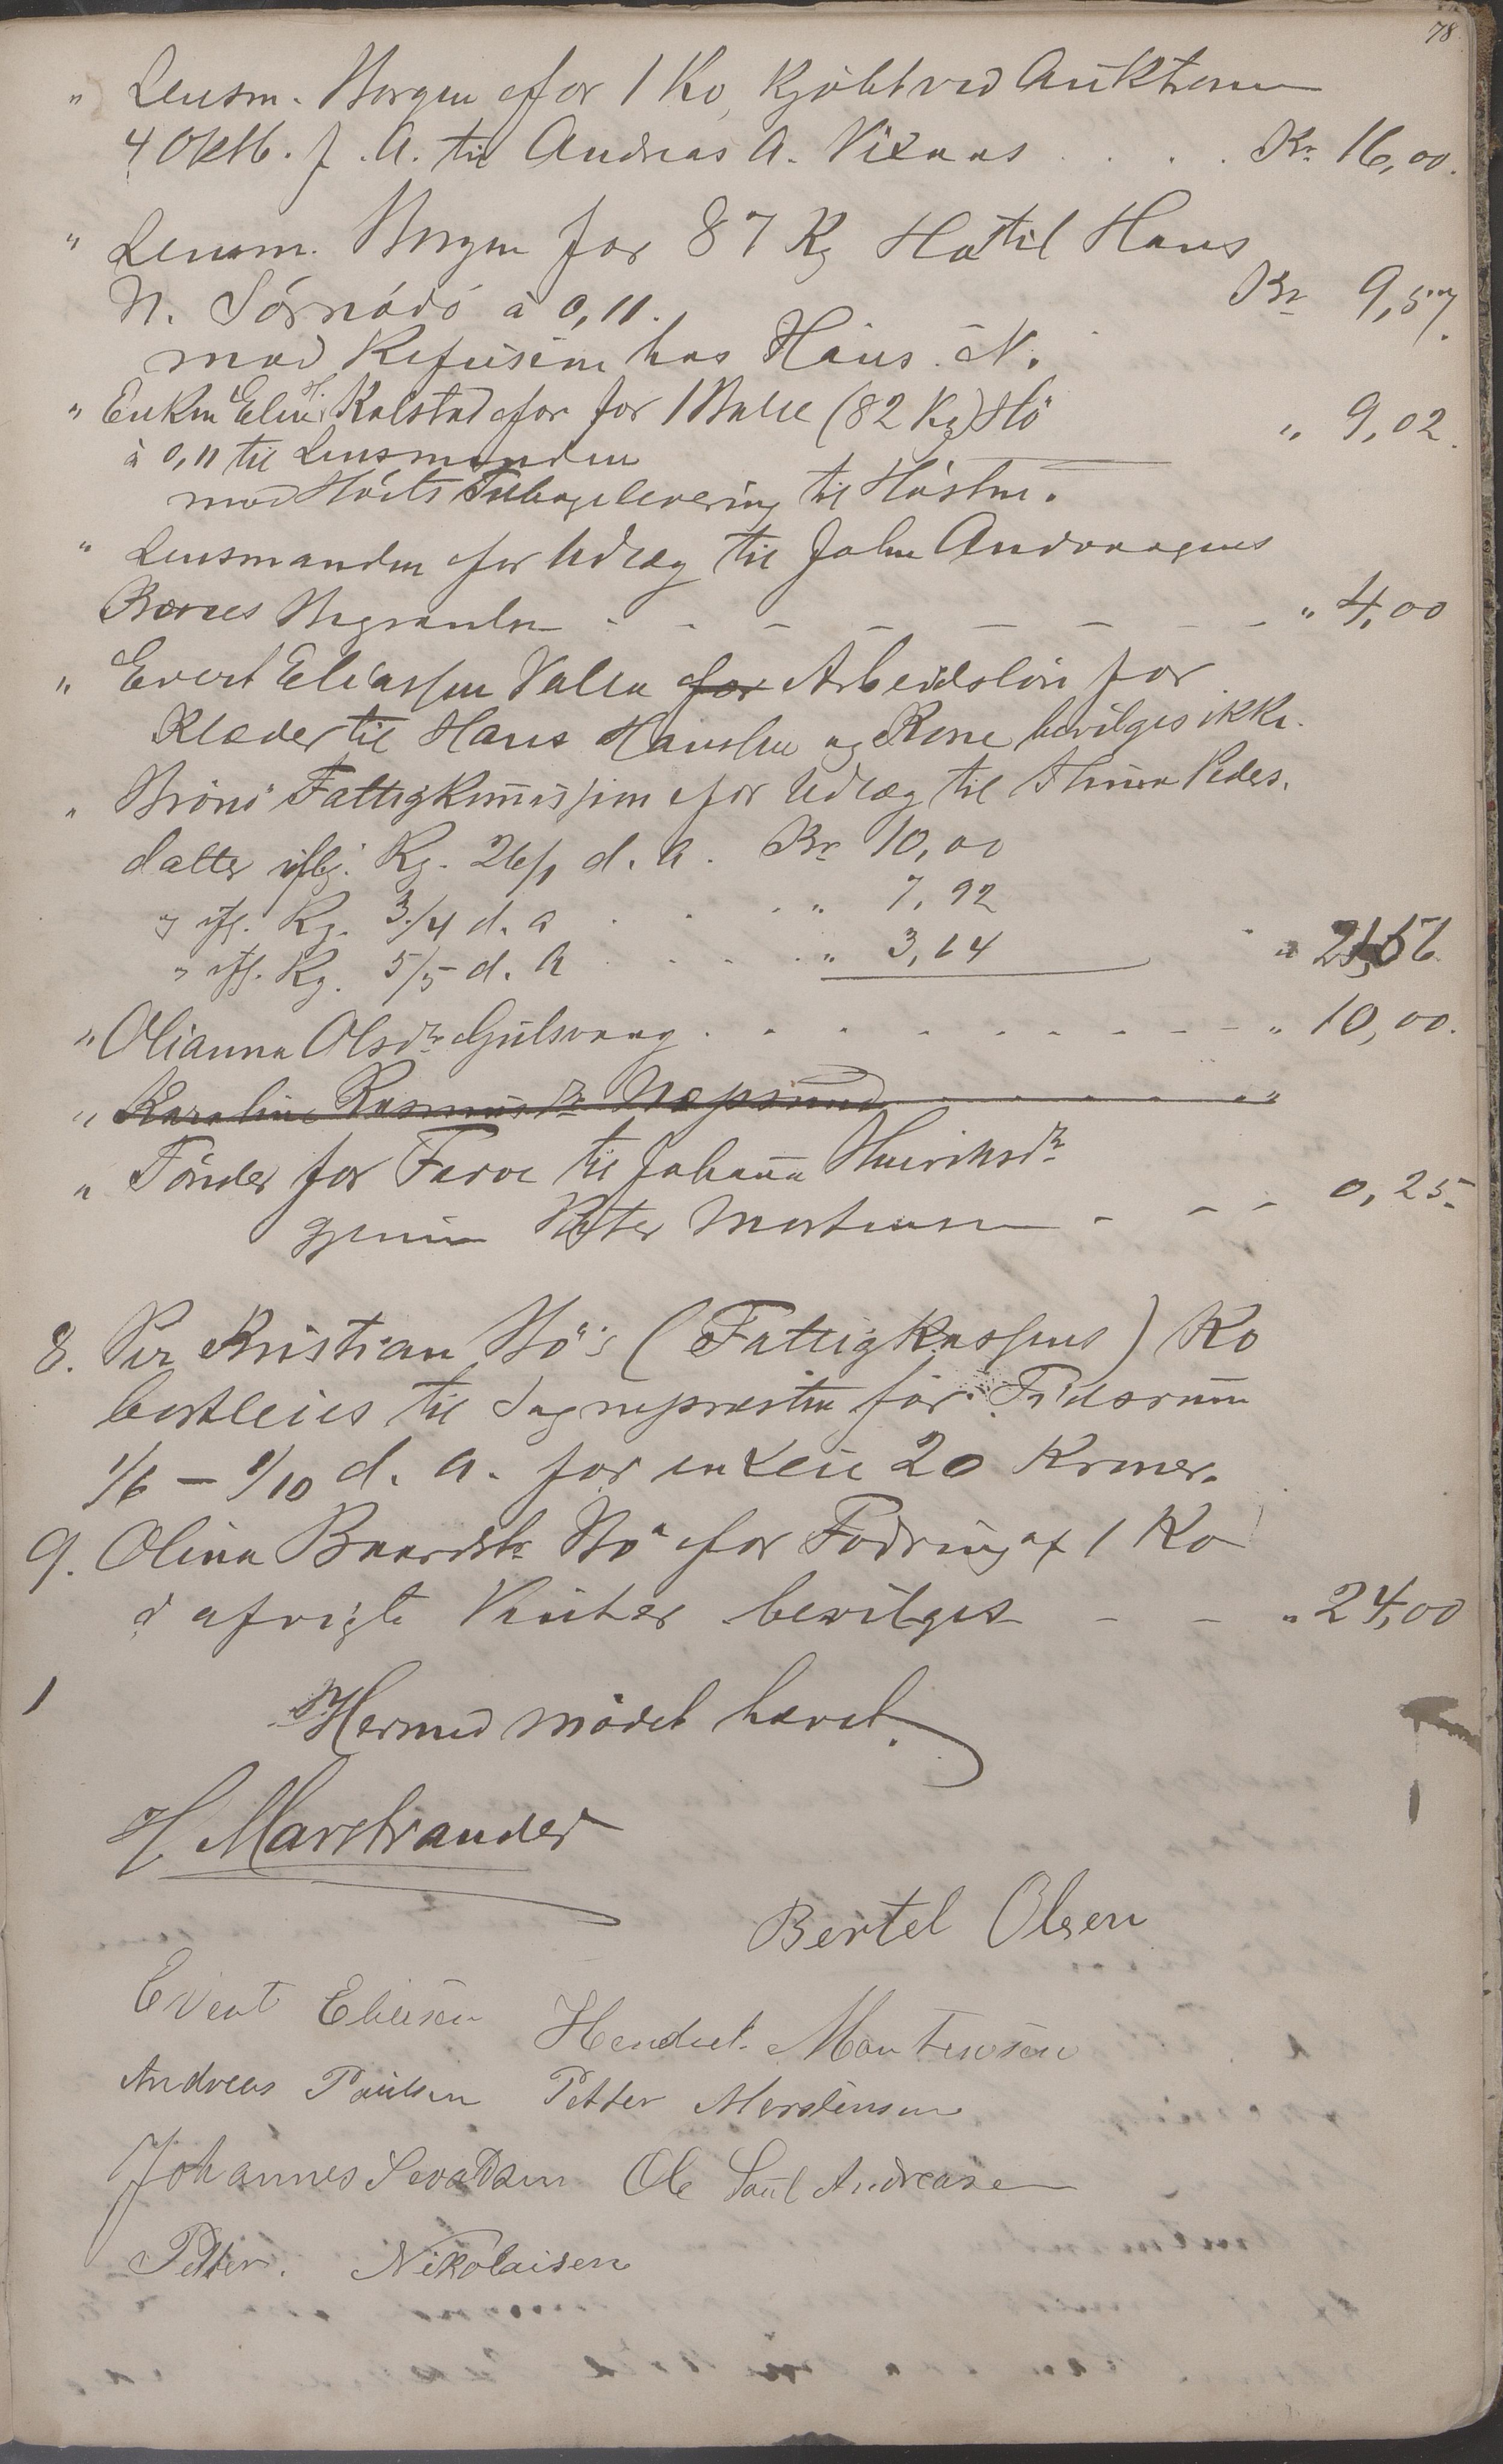 78
" Lensm. Borgen for 1 Ko, kjöbt ved Auktion
4 Oktb. f. A. til Andreas A. Viknas . . . Kr 16,00.
" Lensm. Borgen for 87 Kg Hö til Hans
N. Sörnädö à 0,11. Kr 9,57.
mod Refusion hos Hans N.
" Enken Elen Kalstad for for 1 Balle (82 Kg) Hö " 9,02.
à 0,11 til Lensmanden
mod Höets Tilbagelevering til Hösten.
" Lensmanden for Udlæg til John Andvaagens
Barnes Begravelse - - - - - - - - " 4,00
" Evert Eliassen Valen for Arbeidslön for
Klæder til Hans Hanssen og Kone bevilges ikke.
" Brönö Fattigkommission for Udlæg til Peders.
datter iflg. Rg. 26/1 d. A. Kr 10,00
" ifl. Rg. 3/4 d. a . . . " 7,92
" ifl. Rg. 5/5 d. A . . . . " 3,64 " 21,56
" Olianna Olsdtr Gulsvaag . - - - - - - - - " 10,00.
" Karoline Rasmusdtr Næpsund - - - - - "
" Tönder for Farve til Johanna Henriksdtr
gjennem Peter Mortensen - - - - 0,25.
8. Per Kristian Bö's (Fattigkassens) Ko
bortleies til Sognepresten for Tidsrum
1/6 - 1/10 d. A. for en Leie 20 Kroner.
9. Olina Baardsdtr Bö for Fodring af 1 Ko
i afvigte Vinter bevilges - - - " 24,00
Hermed mödet hævet.
H. Marstrander
Bertel Olsen
Evert Eliesen Hendrik Mortensen
Andreas Paulsen Petter Mortensen
Johannes Sevaldsen Ole Paul Andreasen
Petter. Nikolaisen